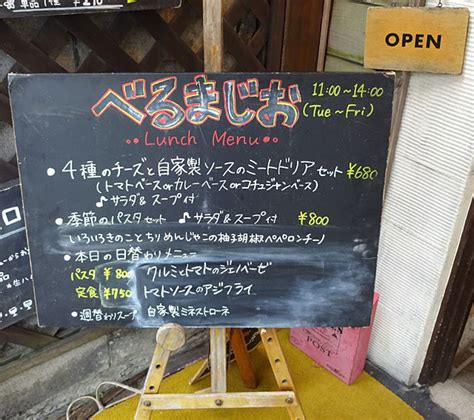 単品1種 ¥210
OPEN
べるまじお
11:00~14:00
(Tue~Fri)
Lunch Menu
・4種のチーズと自家製ソースのミートドリアセット ¥680
(トマトベースorカレーベースorコチュジャンベース)
♪サラダ&スープ付
・季節のパスタセット ♪サラダ&スープ付 ¥800
いろいろきのことちりめんじゃこの柚子胡椒ペペロンチーノ
・本日の日替わりメニュー
パスタ ¥800 クルミとトマトのジェノベーゼ
定食 ¥750 トマトソースのアジフライ
・週替わりスープ 自家製ミネストローネ
POST